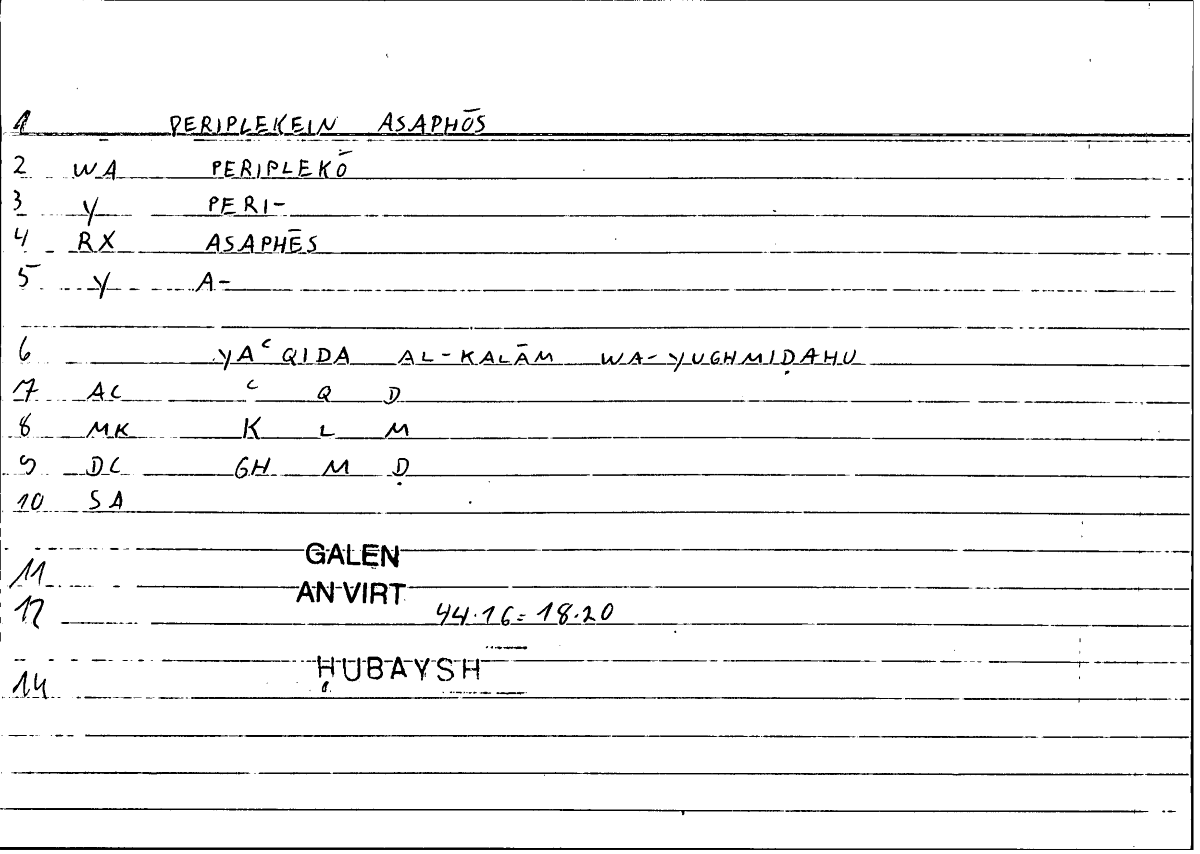 1 PERIPLEKEIN ASAPHŌS
2 WA PERIPLEKŌ
3 Y PERI-
4 RX ASAPHĒS
5 Y A-
6 YAᶜQIDA AL-KALĀM WA-YUGHMIḌAHU
7 AC ᶜ Q D
8 MK K L M
9 DC GH M Ḍ
10 SA
11 GALEN
AN VIRT
12 44.16 = 18.20
14 ḤUBAYSH